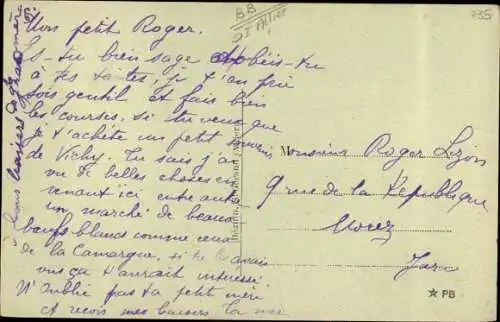 Mon petit Roger.
Es-tu bien sage obéis-tu
à tes tantes, je t'en prie
sois gentil et fais bien
les courses, si tu veux que
je t'achète un petit souvenir
de Vichy. Tu sais j'ai
vu de belles choses en
venant ici entre autre
un marché de beaux
bœufs blancs comme ceux
de la Camargue, si tu avais
vu ça t'aurait intéressé.
N'oublie pas ta petite mère
et reçois mes baisers ta
bons baisers de grand mère
Monsieur Roger Lizon
9 rue de la République
Morez
Jura
BB
735
★ PB